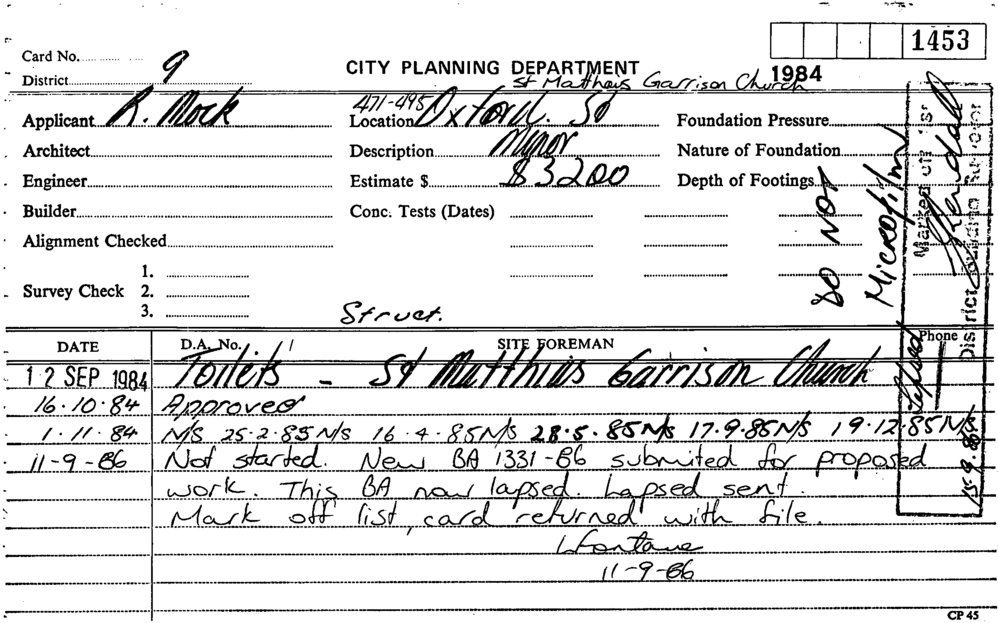 1453
Card No.
District 9
CITY PLANNING DEPARTMENT 1984
St Matthais Garrison Church
Applicant R. Mock
471-495 Location Oxford. St
Foundation Pressure
Architect
Description Minor
Nature of Foundation
Engineer
Estimate $ $3200
Depth of Footings
Builder
Conc. Tests (Dates)
Alignment Checked
Survey Check 1.
2.
3.
Struct.
DO NOT
Microfilm
Marked off list
District Building Surveyor
Lapsed
15.9.86
DATE D.A. No. SITE FOREMAN Phone
12 SEP 1984 Toilets - St Matthias Garrison Church
16.10.84 Approved
1.11.84 N/S 25.2.85 N/S 16.4.85 N/S 28.5.85 N/S 17.9.85 N/S 19.12.85 N/S
11-9-86 Not started. New BA 1331-86 submited for proposed
work. This BA now lapsed. Lapsed sent.
Mark off list, card returned with file.
11-9-86
CP 45